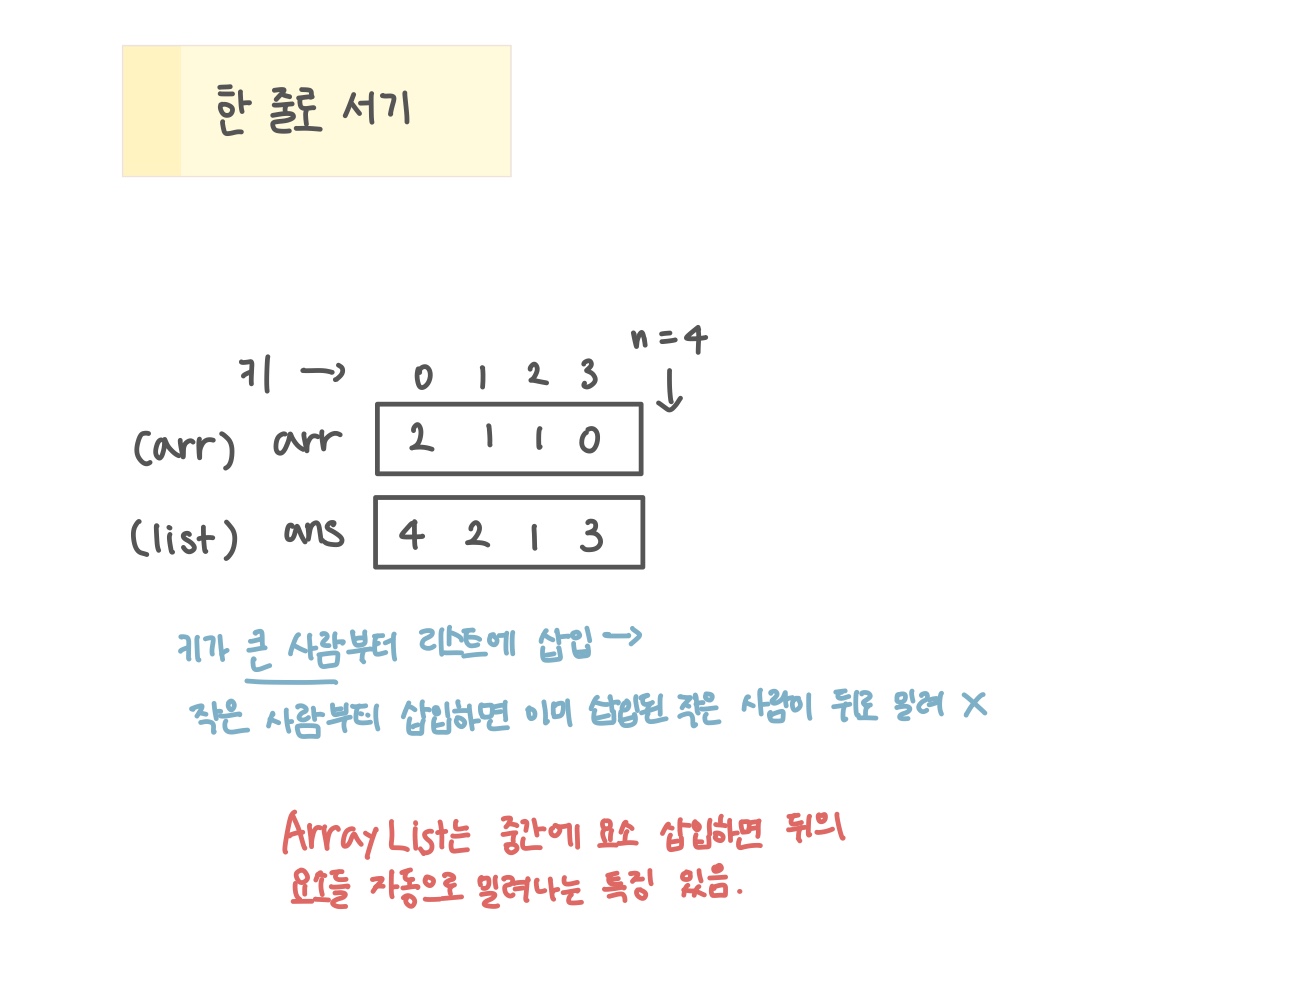 한 줄로 서기
n = 4
키 → 0 1 2 3 ↓
(arr) arr 2 1 1 0
(list) ans 4 2 1 3
키가 큰 사람부터 리스트에 삽입 →
작은 사람부터 삽입하면 이미 삽입된 작은 사람이 뒤로 밀려 X
Array List는 중간에 요소 삽입하면 뒤의
요소들 자동으로 밀려나는 특징 있음.